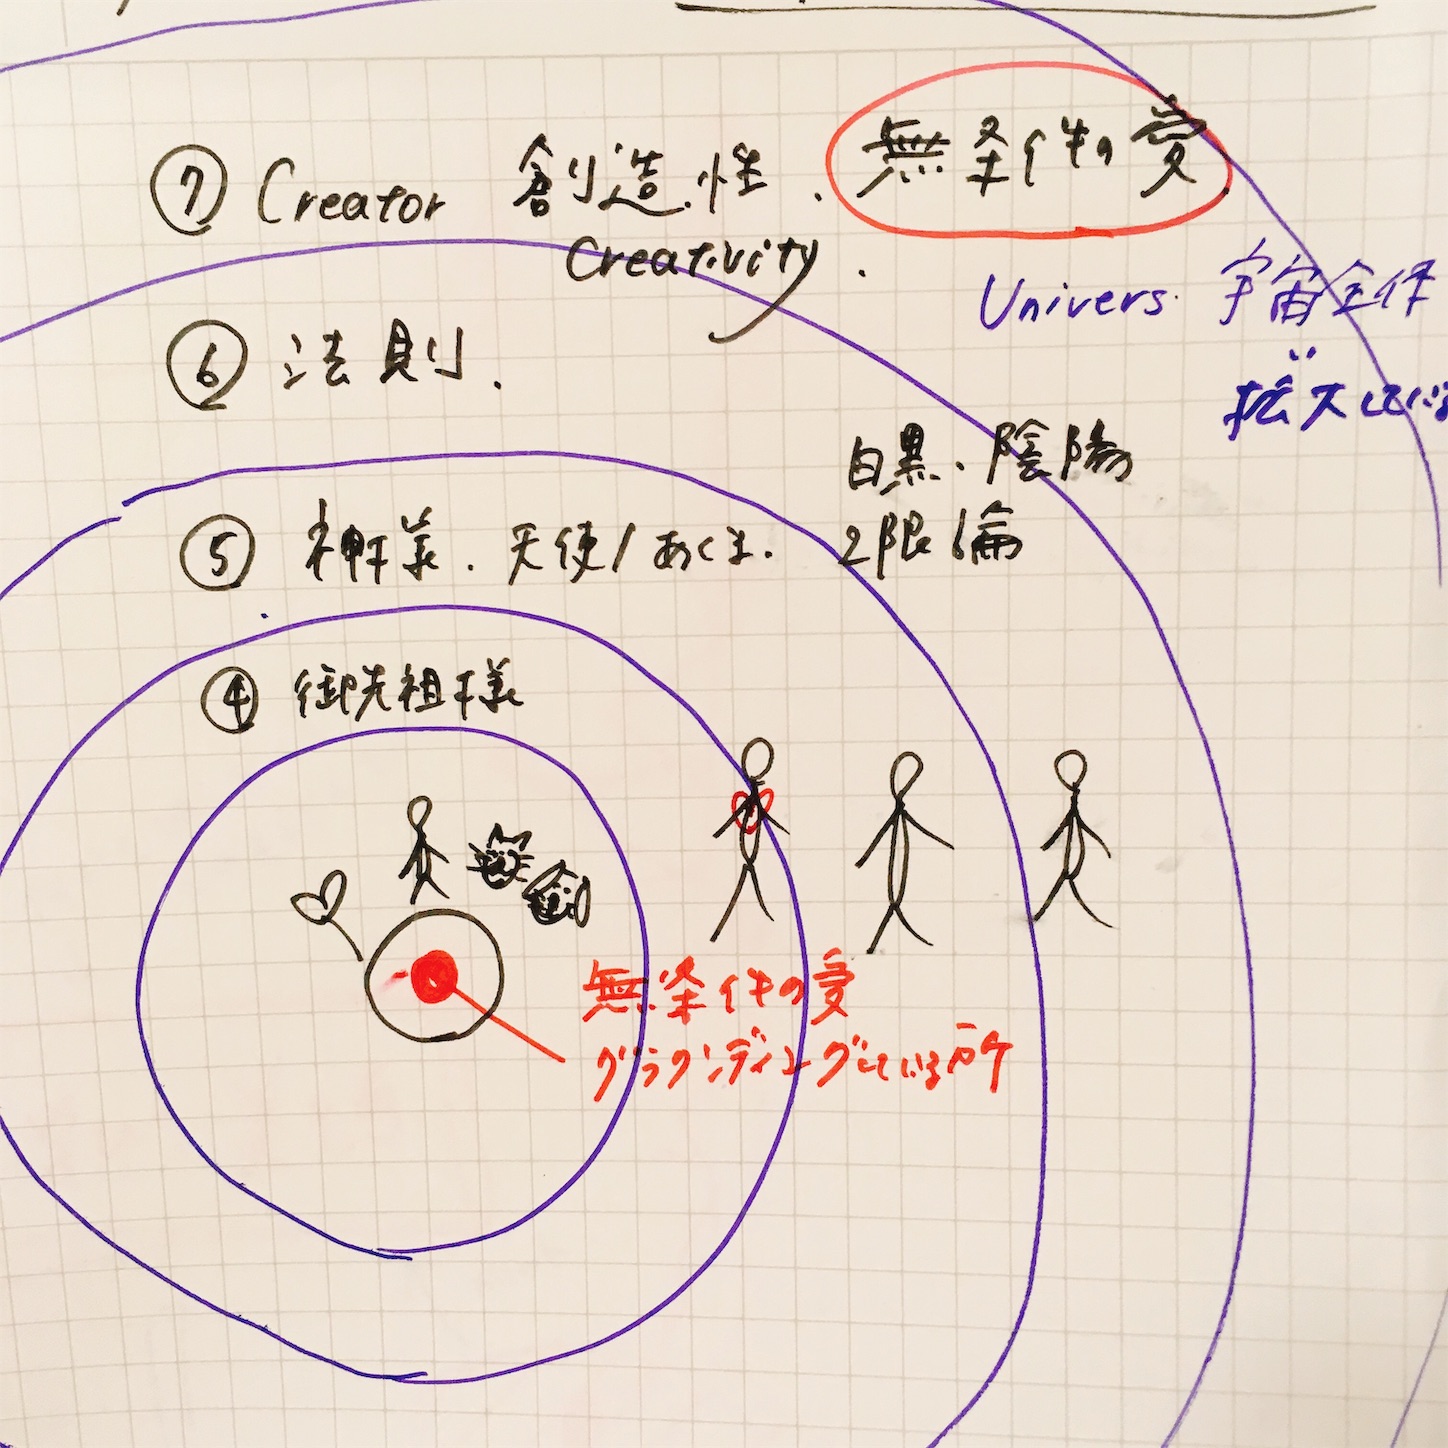 ⑦ Creator 創造性. 無条件の愛
Creativity.
Univers. 宇宙全体
拡大している
⑥ 法則.
白黒、陰陽
2限論
⑤ 神様. 天使/あくま.
④ 御先祖様
無条件の愛
グラウンディングしている所